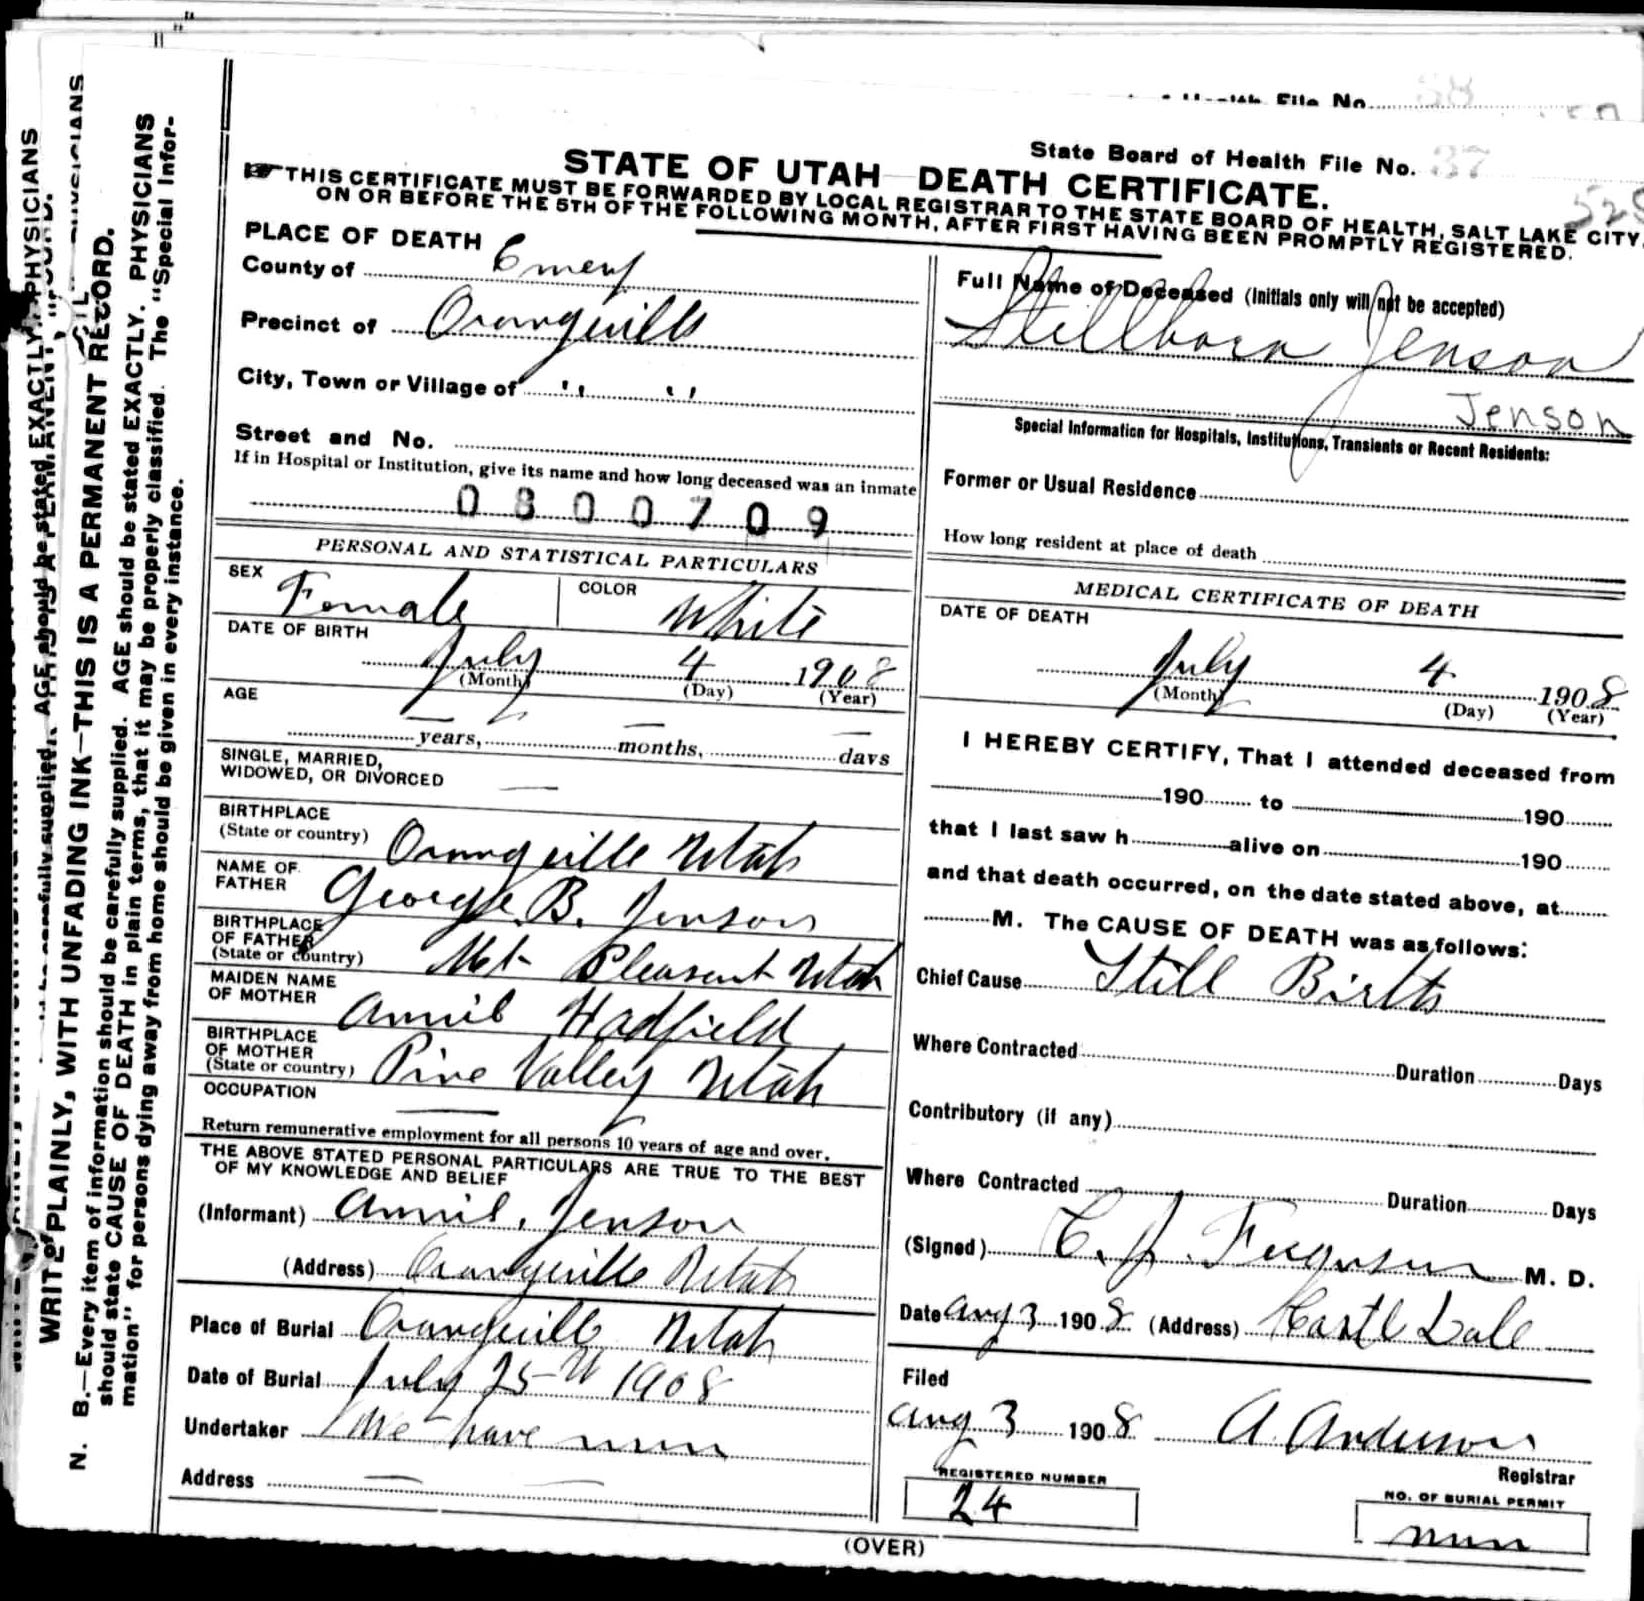 Health File No. 38
State Board of Health File No. 37
STATE OF UTAH DEATH CERTIFICATE.
THIS CERTIFICATE MUST BE FORWARDED BY LOCAL REGISTRAR TO THE STATE BOARD OF HEALTH, SALT LAKE CITY,
ON OR BEFORE THE 5TH OF THE FOLLOWING MONTH, AFTER FIRST HAVING BEEN PROMPTLY REGISTERED.
PLACE OF DEATH
County of Emery
Precinct of Orangeville
City, Town or Village of " "
Street and No.
If in Hospital or Institution, give its name and how long deceased was an inmate
0800709
PERSONAL AND STATISTICAL PARTICULARS
SEX Female COLOR White
DATE OF BIRTH
July 4 1908
(Month) (Day) (Year)
AGE
— years, — months, — days
SINGLE, MARRIED,
WIDOWED, OR DIVORCED —
BIRTHPLACE
(State or country) Orangeville Utah
NAME OF
FATHER George B. Jenson
BIRTHPLACE
OF FATHER
(State or country) Mt Pleasant Utah
MAIDEN NAME
OF MOTHER Annie Hadfield
BIRTHPLACE
OF MOTHER
(State or country) Pine Valley Utah
OCCUPATION —
Return remunerative employment for all persons 10 years of age and over.
THE ABOVE STATED PERSONAL PARTICULARS ARE TRUE TO THE BEST
OF MY KNOWLEDGE AND BELIEF
(Informant) Annie. Jenson
(Address) Orangeville Utah
Place of Burial Orangeville Utah
Date of Burial July 25th 1908
Undertaker We have nun
Address — —
Full Name of Deceased (Initials only will not be accepted)
Stillborn Jenson
Jenson
Special Information for Hospitals, Institutions, Transients or Recent Residents:
Former or Usual Residence
How long resident at place of death
MEDICAL CERTIFICATE OF DEATH
DATE OF DEATH
July 4 1908
(Month) (Day) (Year)
I HEREBY CERTIFY, That I attended deceased from
190 to 190
that I last saw h alive on 190
and that death occurred, on the date stated above, at
M. The CAUSE OF DEATH was as follows:
Chief Cause Still Birth
Where Contracted Duration Days
Contributory (if any)
Where Contracted Duration Days
(Signed) C. J. Ferguson M. D.
Date Aug 3 1908 (Address) Castle Dale
Filed
Aug 3 1908 A. Anderson
Registrar
REGISTERED NUMBER
24
NO. OF BURIAL PERMIT
nun
(OVER)
WRITE PLAINLY, WITH UNFADING INK—THIS IS A PERMANENT RECORD.
N. B.—Every item of information should be carefully supplied. AGE should be stated EXACTLY. PHYSICIANS
should state CAUSE OF DEATH in plain terms, that it may be properly classified. The "Special Infor-
mation" for persons dying away from home should be given in every instance.